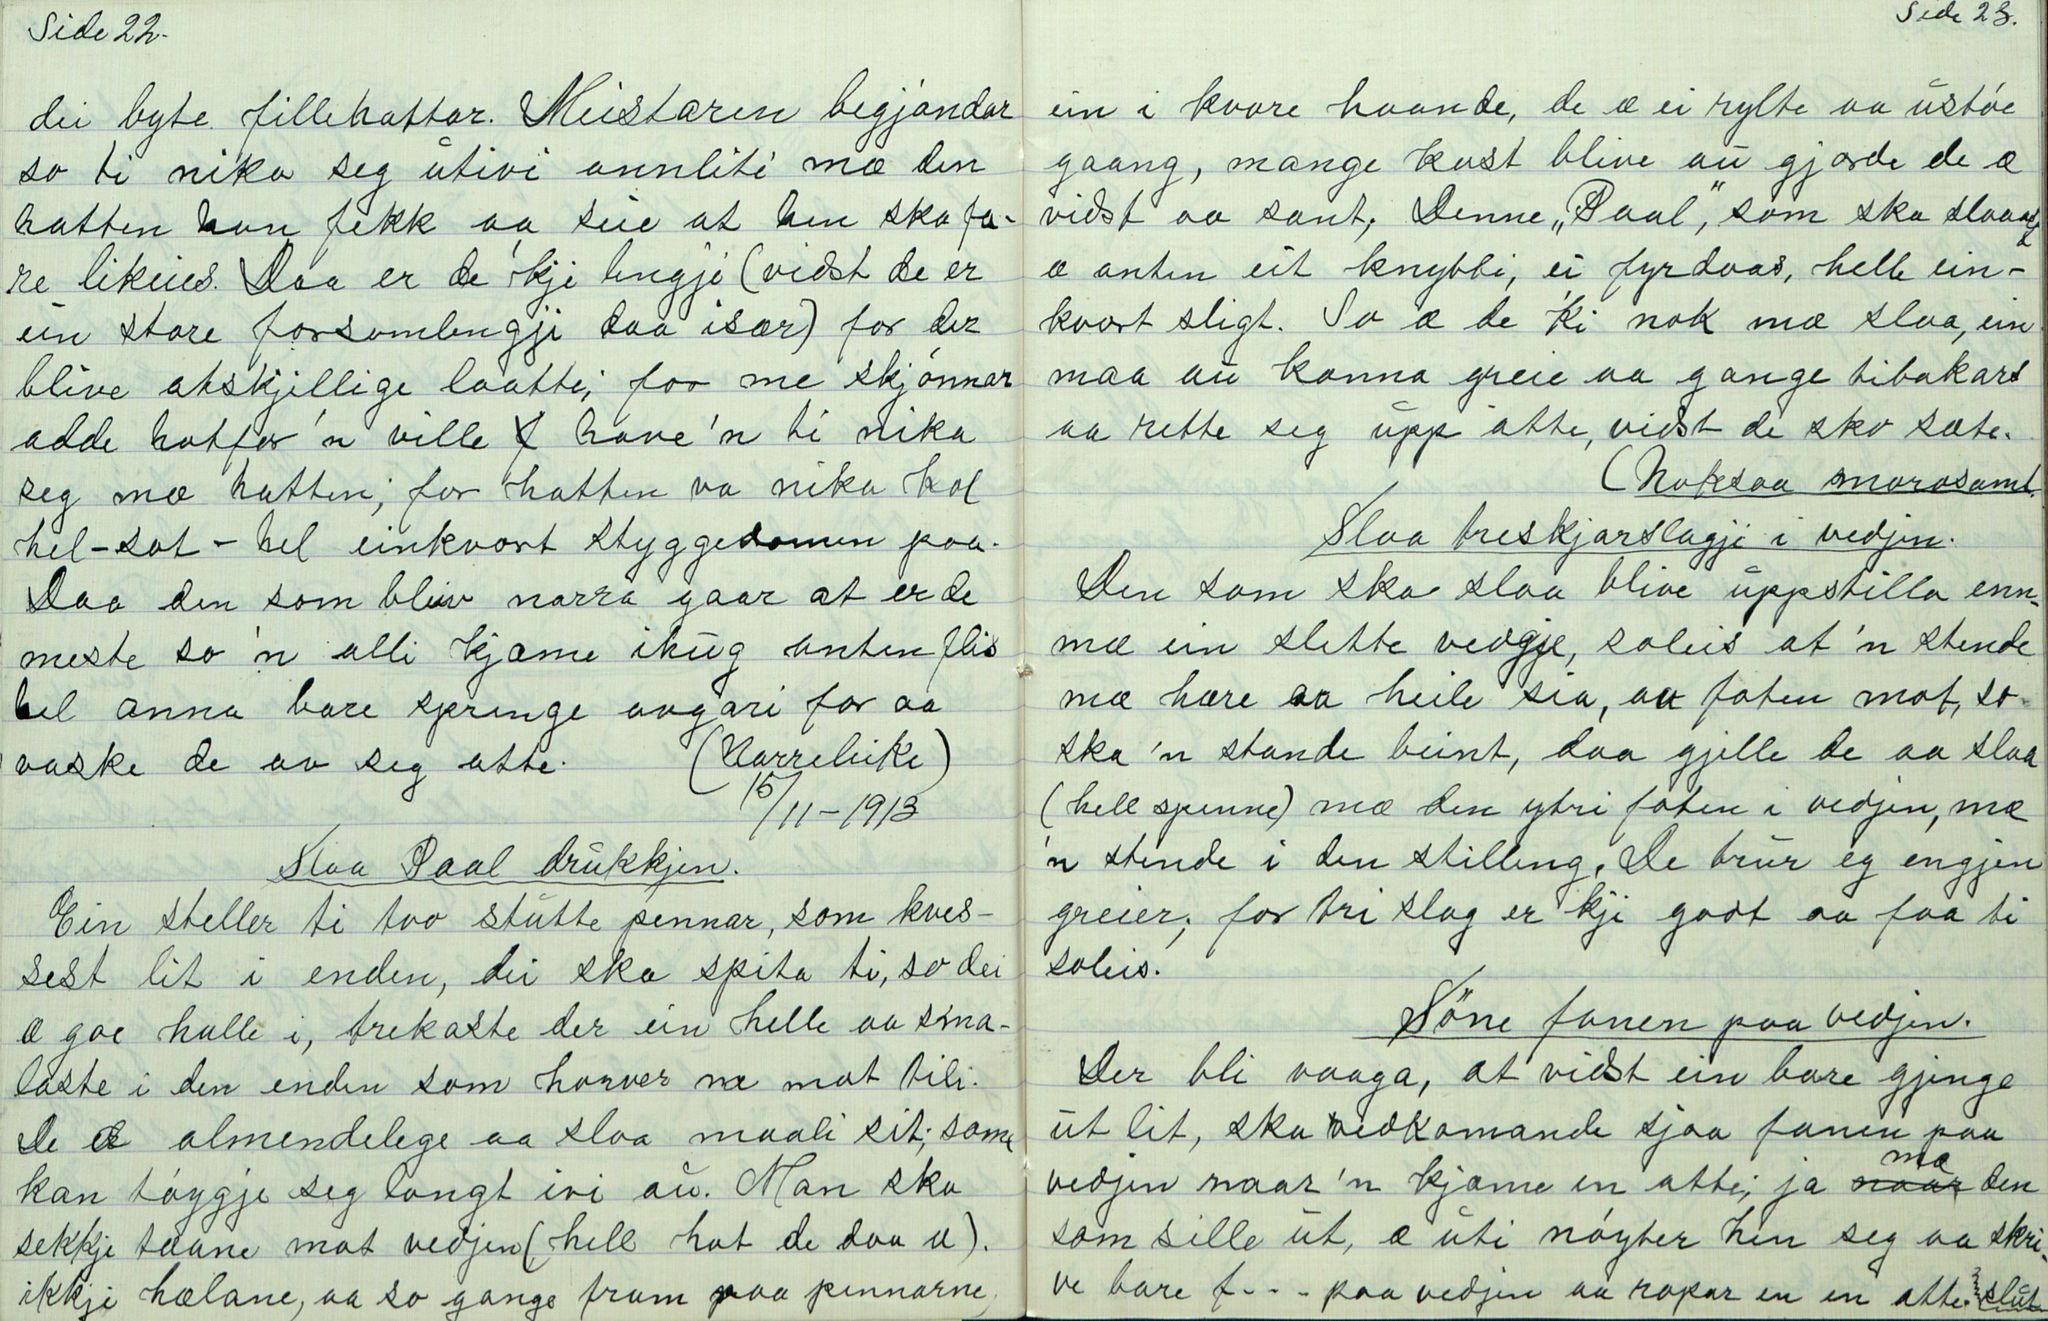 Side 22.
dei byte fillehattar. Meistaren begjóndar
so ti nika seg ūtivi annliti mæ den
hatten han fekk aa seie at hen ska fa-
re likeies. Daa er de 'kje lengje (vidst de er
ein store forsamlengji daa især) for der
blive atskjellige laatte; for me skjónnar
adde hotfor 'n ville have 'n ti nika
seg mæ hatten; for hatten va nika kol
hel-sot-hel einkvort styggedomen paa.
Daa den som bleiv narra gaar at er de
meste so 'n alli kjæme ihūg anten flis
hel anna bare springe avgari for aa
vaske de av seg atte. (Narreleike)
15/11-1913
Slaa Paal drūkkjen.
Ein steller ti tvo stūtte pennar, som kves-
sest lit i enden, dei ska spita ti, so dei
æ goe halle i, trekaste der ein helle aa sma-
laste i den enden som horver ne mot tili.
De æ almendelege aa slaa maali sit; some
kan tóygje seg langt ivi aū. Man ska
sekkje taane mot vedjen (hell hot de daa æ).
ikkje hælane, aa so gange fram paa pennarne,
Side 23.
ein i kvare haande, de æ ei rylte aa ūstóe
gaang, mange kast blive aū gjorde de æ
vidst aa sant; Denne „Paal", som ska slaaas
æ anten eit knybbi, ei fyrdaas, helle ein-
kvort sligt. So æ de 'ki nok mæ slaa, ein
maa aū kanna greie aa gange tibakars
aa rette seg ūpp atte, vidst de sko sæte.
(Noksaa morosamt.
Slaa treskjarslagji i vedjen.
Den som ska slaa blive ūppstilla enn-
mæ ein slette vedgje, soleis at 'n stende
mæ hære aa heile sia, au foten mot, so
ska 'n stande beint, daa gjelle de aa slaa
(hell spenne) mæ den ytri foten i vedjen, mæ
'n stende i den stilleng. De trūr eg engjen
greier; for tri slag er 'kji godt aa faa ti
soleis.
Söne fanen paa vedjen.
Der bli vaaga, at vidst ein bare gjenge
ūt lit, ska vedkomande sjaa fanen paa
vedjen naar 'n kjæme en atte; ja naar mæ den
som sille ūt, æ ūti nóyter hen seg aa skri-
ve bare f--- paa vedjen aa ropar en en atte. slūt